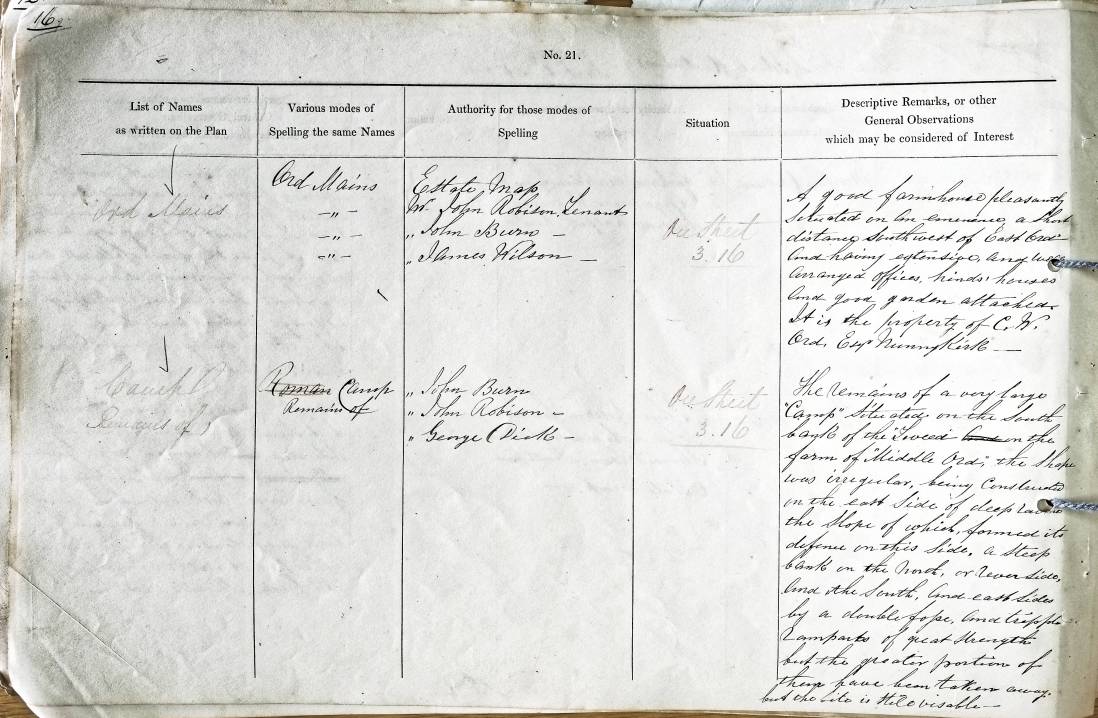 16
No. 21.
List of Names
as written on the Plan
Various modes of
Spelling the same Names
Authority for those modes of
Spelling
Situation
Descriptive Remarks, or other
General Observations
which may be considered of Interest
Ord Mains
Ord Mains
Estate Map
Mr. John Robison, Tenant
-„- „ John Burn -
-„- „ James Wilson -
-„-
See Sheet
3.16
A good farmhouse pleasantly
situated on an eminence, a short
distance southwest of East Ord
and having extensive, and well
arranged offices, hinds' houses
and good garden attached.
It is the property of C. W.
Ord, Esqr Nunnykirk —
Camp
Remains of
Roman Camp
Remains of
„ John Burn
„ John Robison -
„ George Dick -
See Sheet
3.16
The remains of a very large
"Camp" situated on the South
bank of the Tweed and on the
farm of "Middle Ord", the shape
was irregular, being Constructed
on the east side of deep ravine
the slope of which, formed its
defence on this side, a steep
bank on the North, or river side,
and the South, and east sides
by a double fosse, and tripple
ramparts of great strength
but the greater portion of
them have been taken away.
but the site is still visable —